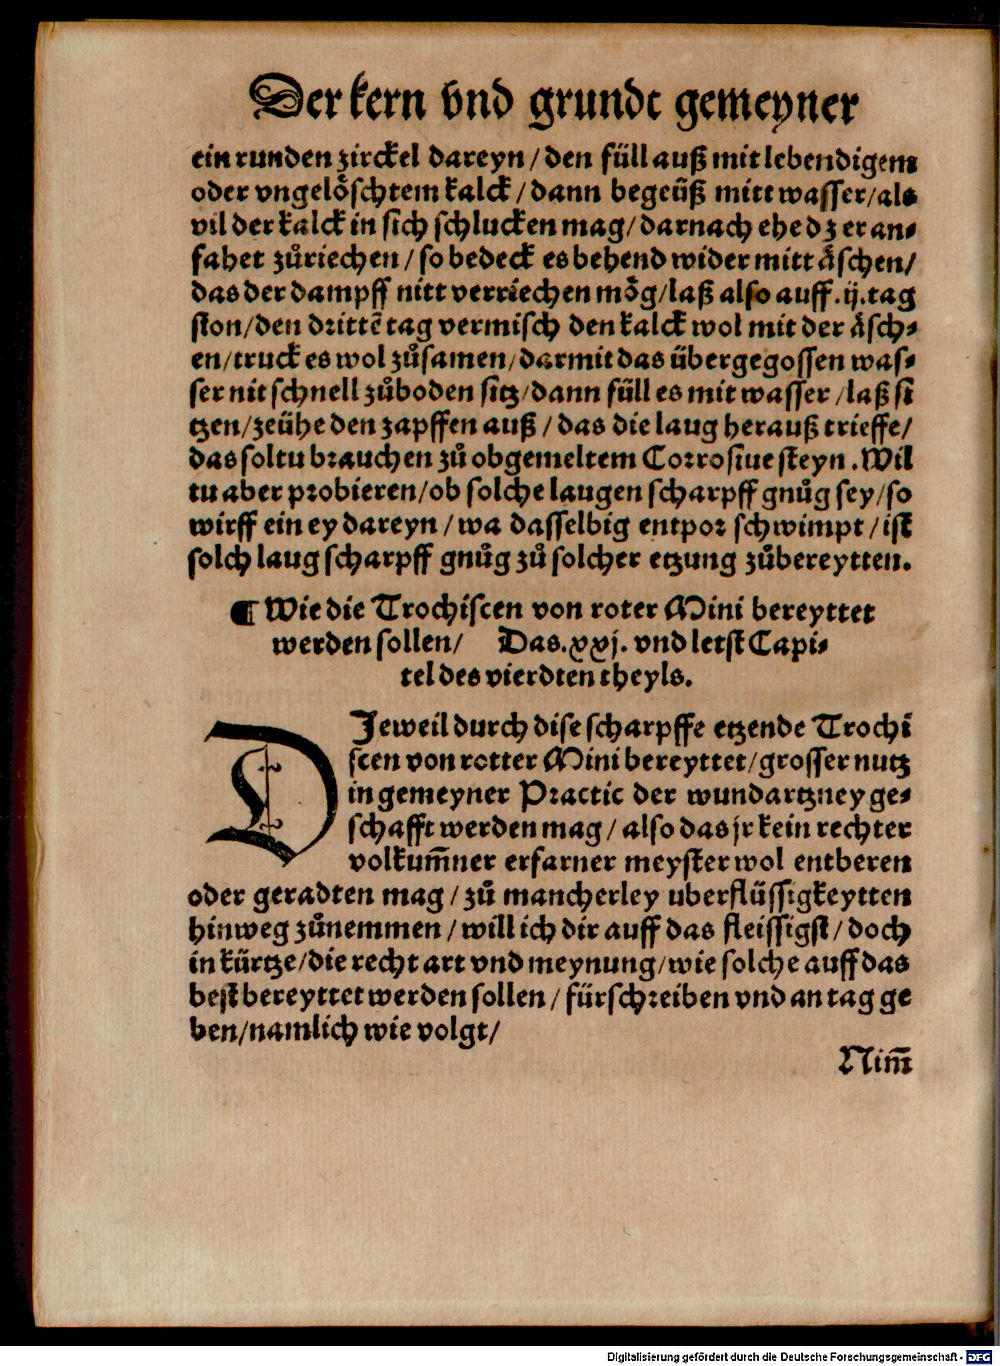 Der kern vnd grundt gemeyner
ein runden zirckel dareyn / den füll auß mit lebendigem
oder vngelöschtem kalck / dann begeüß mitt wasser / als
vil der kalck in sich schlucken mag / darnach ehe dz er an-
fahet zůriechen / so bedeck es behend wider mitt äschen /
das der dampff nitt verriechen mög / laß also auff .ij. tag
ston / den drittē tag vermisch den kalck wol mit der äsch-
en / truck es wol zůsamen / darmit das übergegossen was-
ser nit schnell zůboden sitz / dann füll es mit wasser / laß si
tzen / zeühe den zapffen auß / das die laug herauß trieffe /
das soltu brauchen zů obgemeltem Corrosiue steyn . Wil
tu aber probieren / ob solche laugen scharpff gnůg sey / so
wirff ein ey dareyn / wa dasselbig entpor schwimpt / ist
solch laug scharpff gnůg zů solcher etzung zůbereytten.
¶ Wie die Trochiscen von roter Mini bereyttet
werden sollen / Das .xxj. vnd letst Capi-
tel des vierdten theyls.
DJeweil durch dise scharpffe etzende Trochi
scen von rotter Mini bereyttet / grosser nutz
in gemeyner Practic der wundartzney ge-
schafft werden mag / also das jr kein rechter
volkum̄ner erfarner meyster wol entberen
oder geradten mag / zů mancherley uberflüssigkeytten
hinweg zůnemmen / will ich dir auff das fleissigst / doch
in kürtze / die recht art vnd meynung / wie solche auff das
best bereyttet werden sollen / fürschreiben vnd an tag ge
ben / namlich wie volgt /
Nim̄
Digitalisierung gefördert durch die Deutsche Forschungsgemeinschaft - DFG